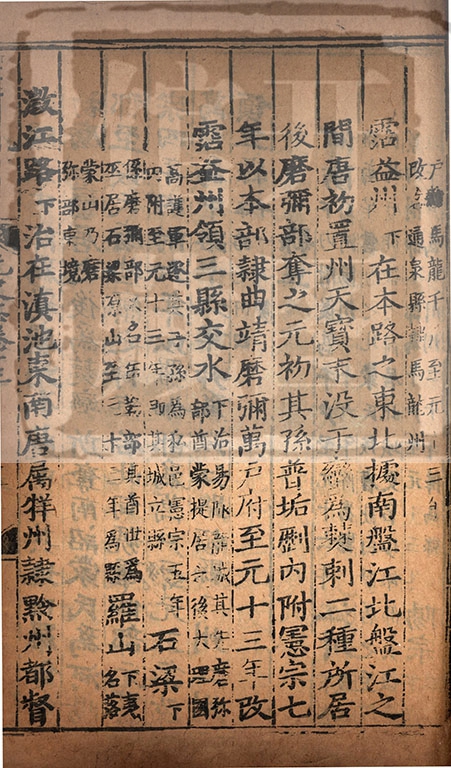 戶府馬龍千戶至元十三年
改為通泉縣隸馬龍州
霑益州下在本路之東北據南盤江北盤江之
間唐初置州天寶末沒于蠻為僰剌二種所居
後磨彌部奪之元初其孫普垢劘內附憲宗七
年以本部隸曲靖磨彌萬戶府至元十三年改
霑益州領三縣交水下治易陬龍城其先磨彌
部酋蒙提居六後大理國
高護軍逐其子孫為私邑憲宗五年
內附至元十三年即其城立縣石梁下
係磨彌部又名伍勒部其酋世為
巫居石梁原山至元十三年為縣羅山下夷
名落
蒙山乃磨
彌部東境
澂江路下治在滇池東南唐屬牂州隸黔州都督